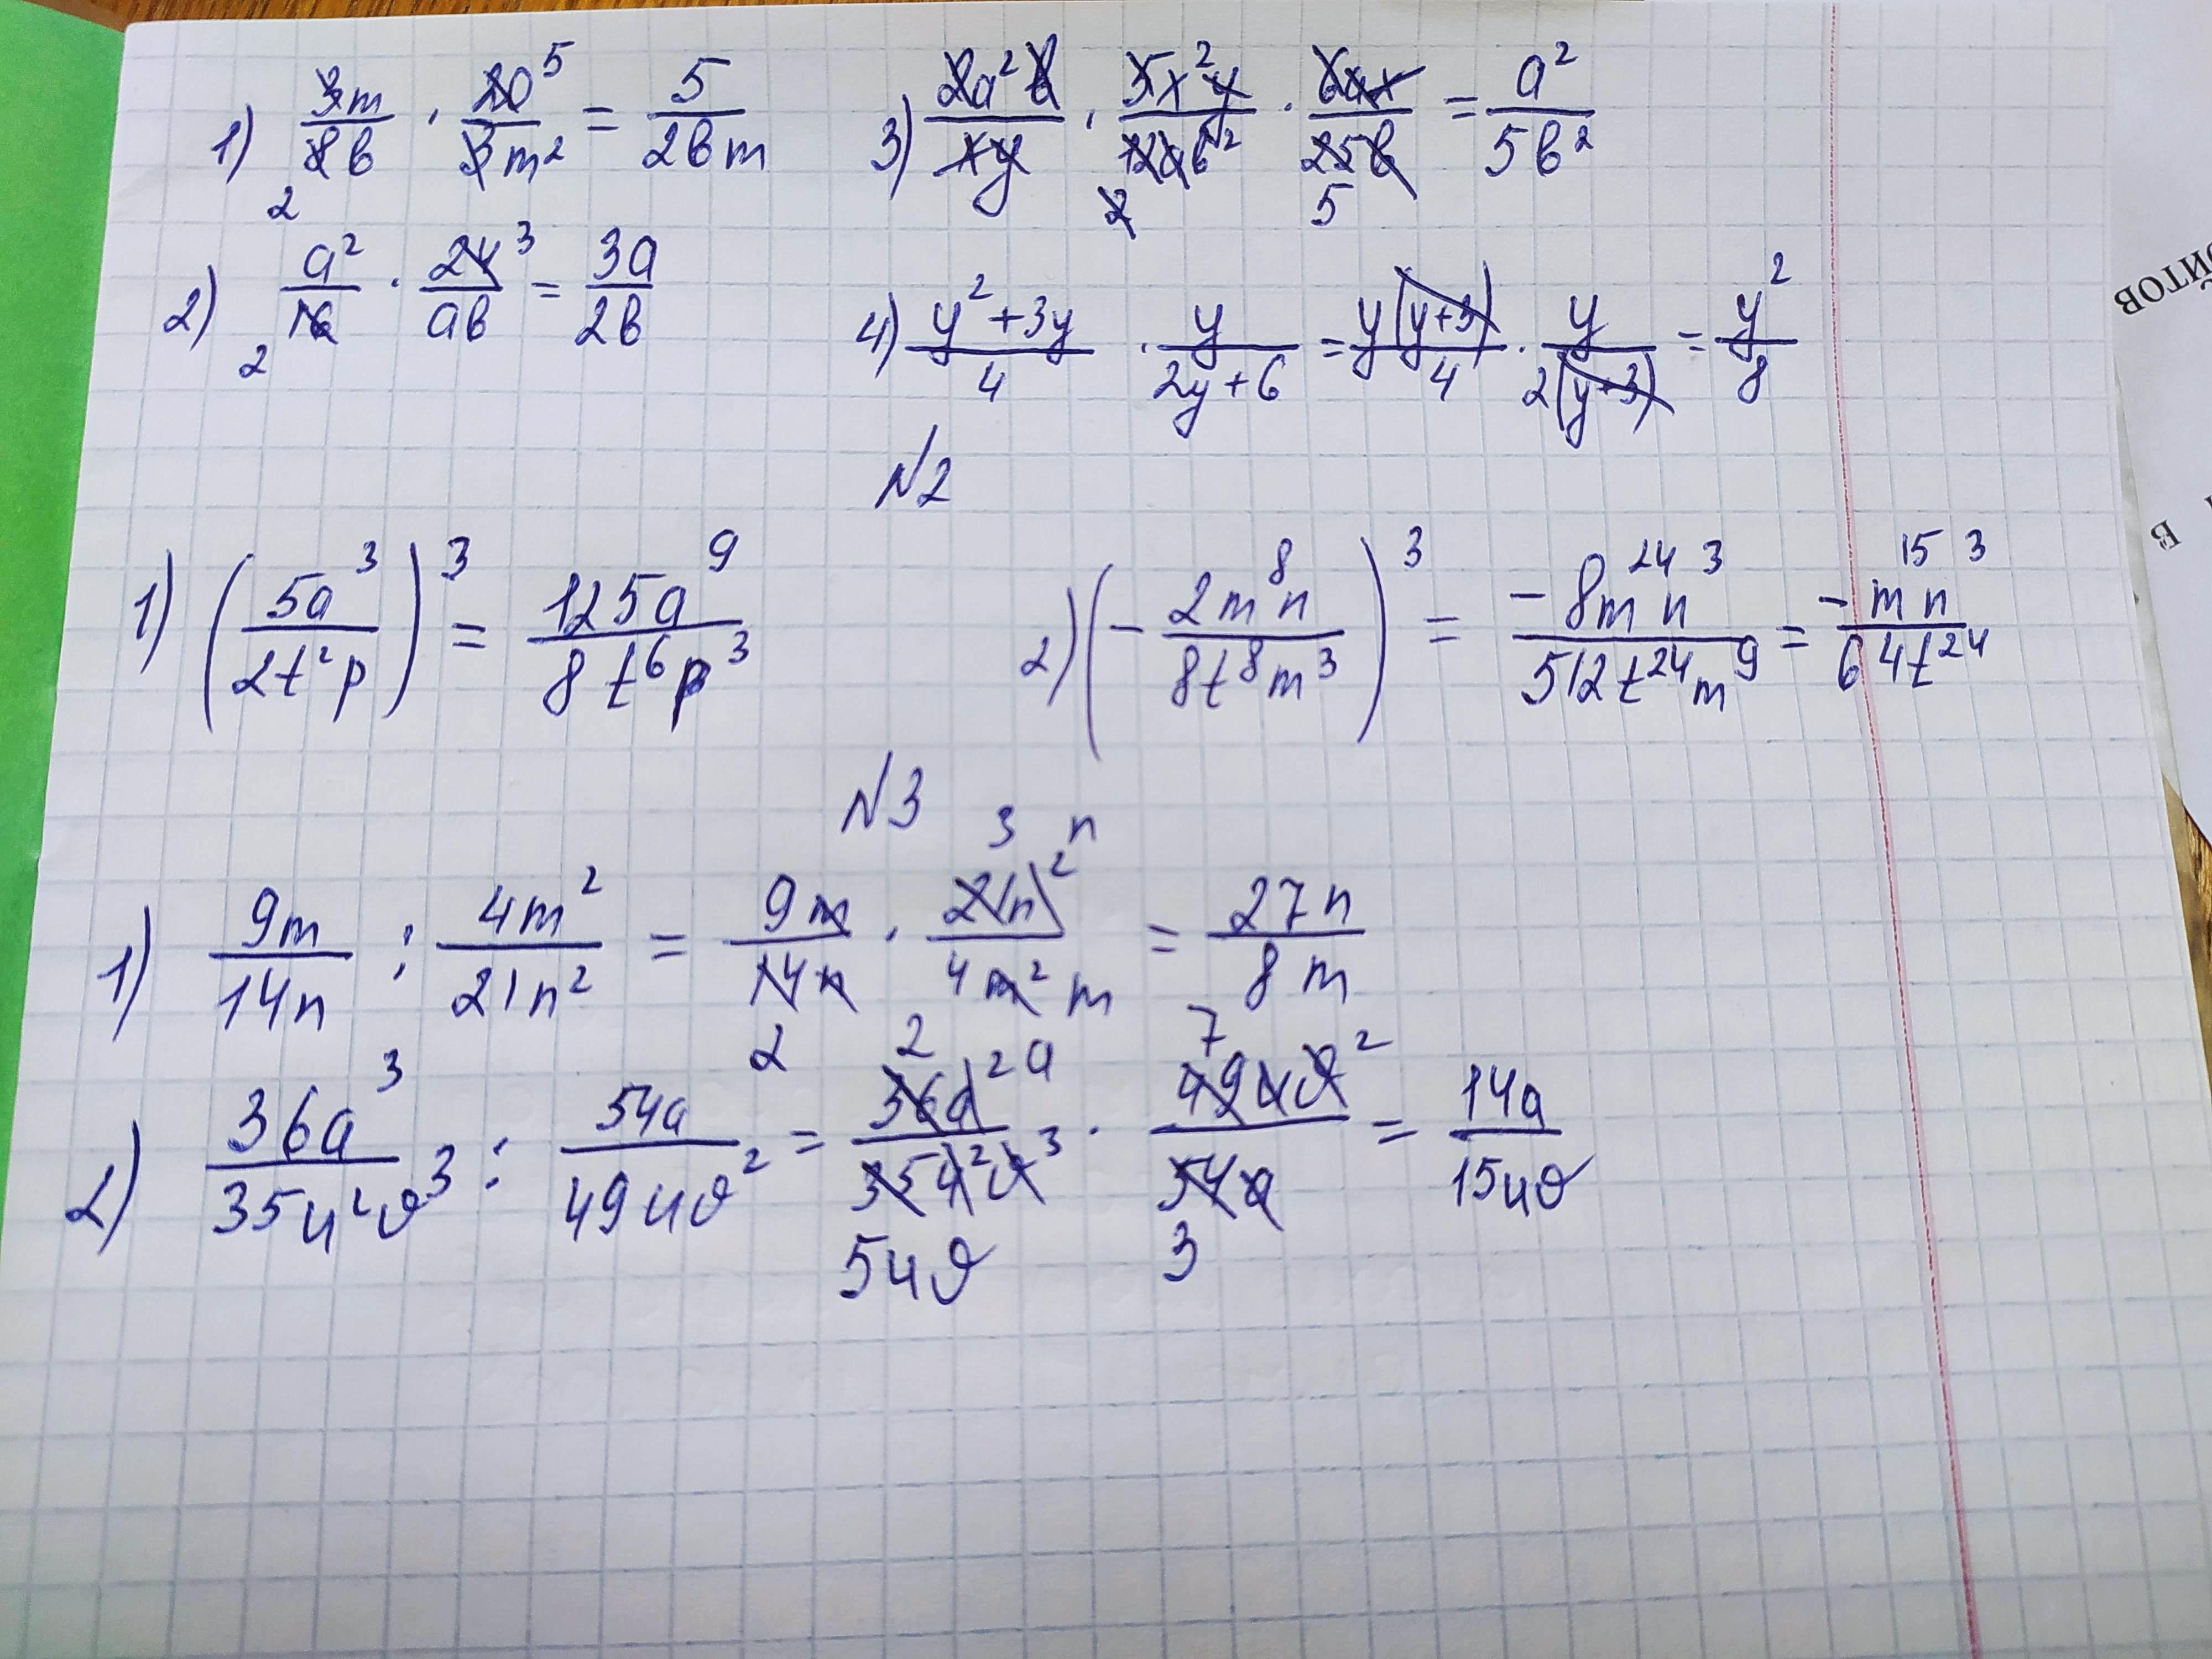 1) 3m/8b · 20/3m² = 5/2bm
5
2
3) 2a²b/xy · 5x²y/12ab² · 6ax/25b = a²/5b²
2
5
2) a²/16 · 24/ab = 3a/2b
3
2
4) y²+3y/4 · y/2y+6 = y(y+3)/4 · y/2(y+3) = y²/8
N2
1) (5a³/2t²p)³ = 125a⁹/8t⁶p³
2) (-2m⁸n/8t⁸m³)³ = -8m²⁴n³/512t²⁴m⁹ = -m¹⁵n³/64t²⁴
N3
1) 9m/14n : 4m²/21n² = 9m/14n · 21n²/4m² = 27n/8m
3 n
2 m
2) 36a³/35u²v³ : 54a/49uv² = 36a²/35u²v³ · 49uv²/54a = 14a/15uv
2 a 7
5uv 3
ОЙТОВ
В